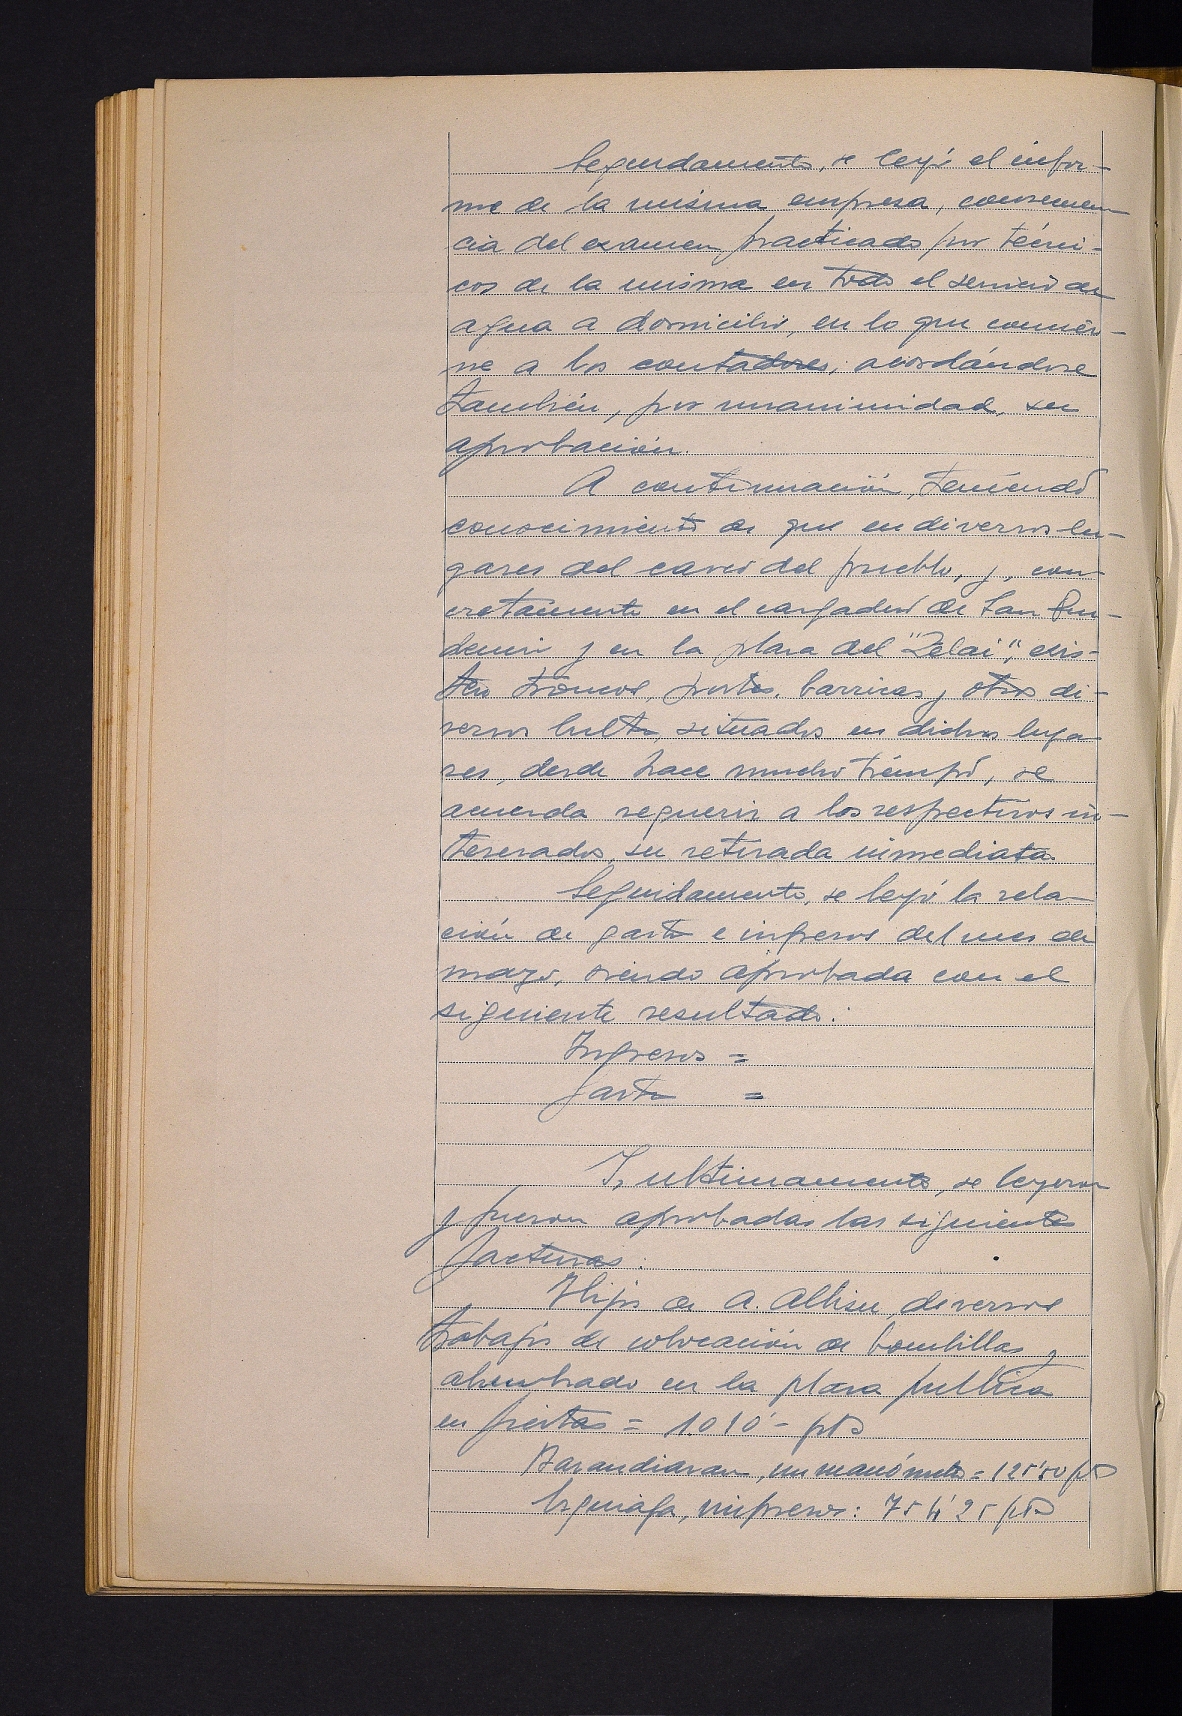 Seguidamente, se leyó el infor-
me de la misma empresa, consecuen
cia del examen practicado por técni-
cos de la misma en todo el servicio de
agua a domicilio, en lo que concier-
ne a los contadores, acordándose
también, por unanimidad, su
aprobación.
A continuación, teniendo
conocimiento de que en diversos lu-
gares del casco del pueblo, y, con-
cretamente en el cargadero de San Pru-
dencio y en la plaza del "Zelai", exis-
ten troncos, postes, barricas y otros di-
versos bultos situados en dichos luga-
res, desde hace mucho tiempo, se
acuerda requerir a los respectivos in-
teresados, su retirada inmediata.
Seguidamente, se leyó la rela-
ción de gastos e ingresos del mes de
mayo, siendo aprobada con el
siguiente resultado:
Ingresos =
Gastos =
Y, ultimamente, se leyeron
y fueron aprobadas las siguientes
facturas:
Hijos de A. Albisu, diversos
trabajos de colocación de bombillas y
alumbrado en la plaza publica
en fiestas = 1.010'- pts
Barandiaran, un manómetro = 125'50 pts
impresos: 754'25 pts